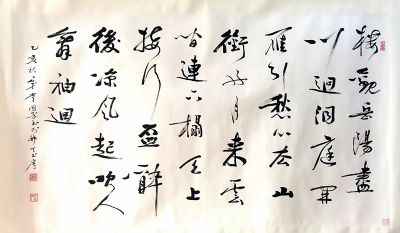 楼觀岳陽盡
川迴洞庭開
雁引愁心去山
銜好月来雲
間連下榻天上
接行盃醉
後涼風起吹人
舞袖迴
乙亥秋